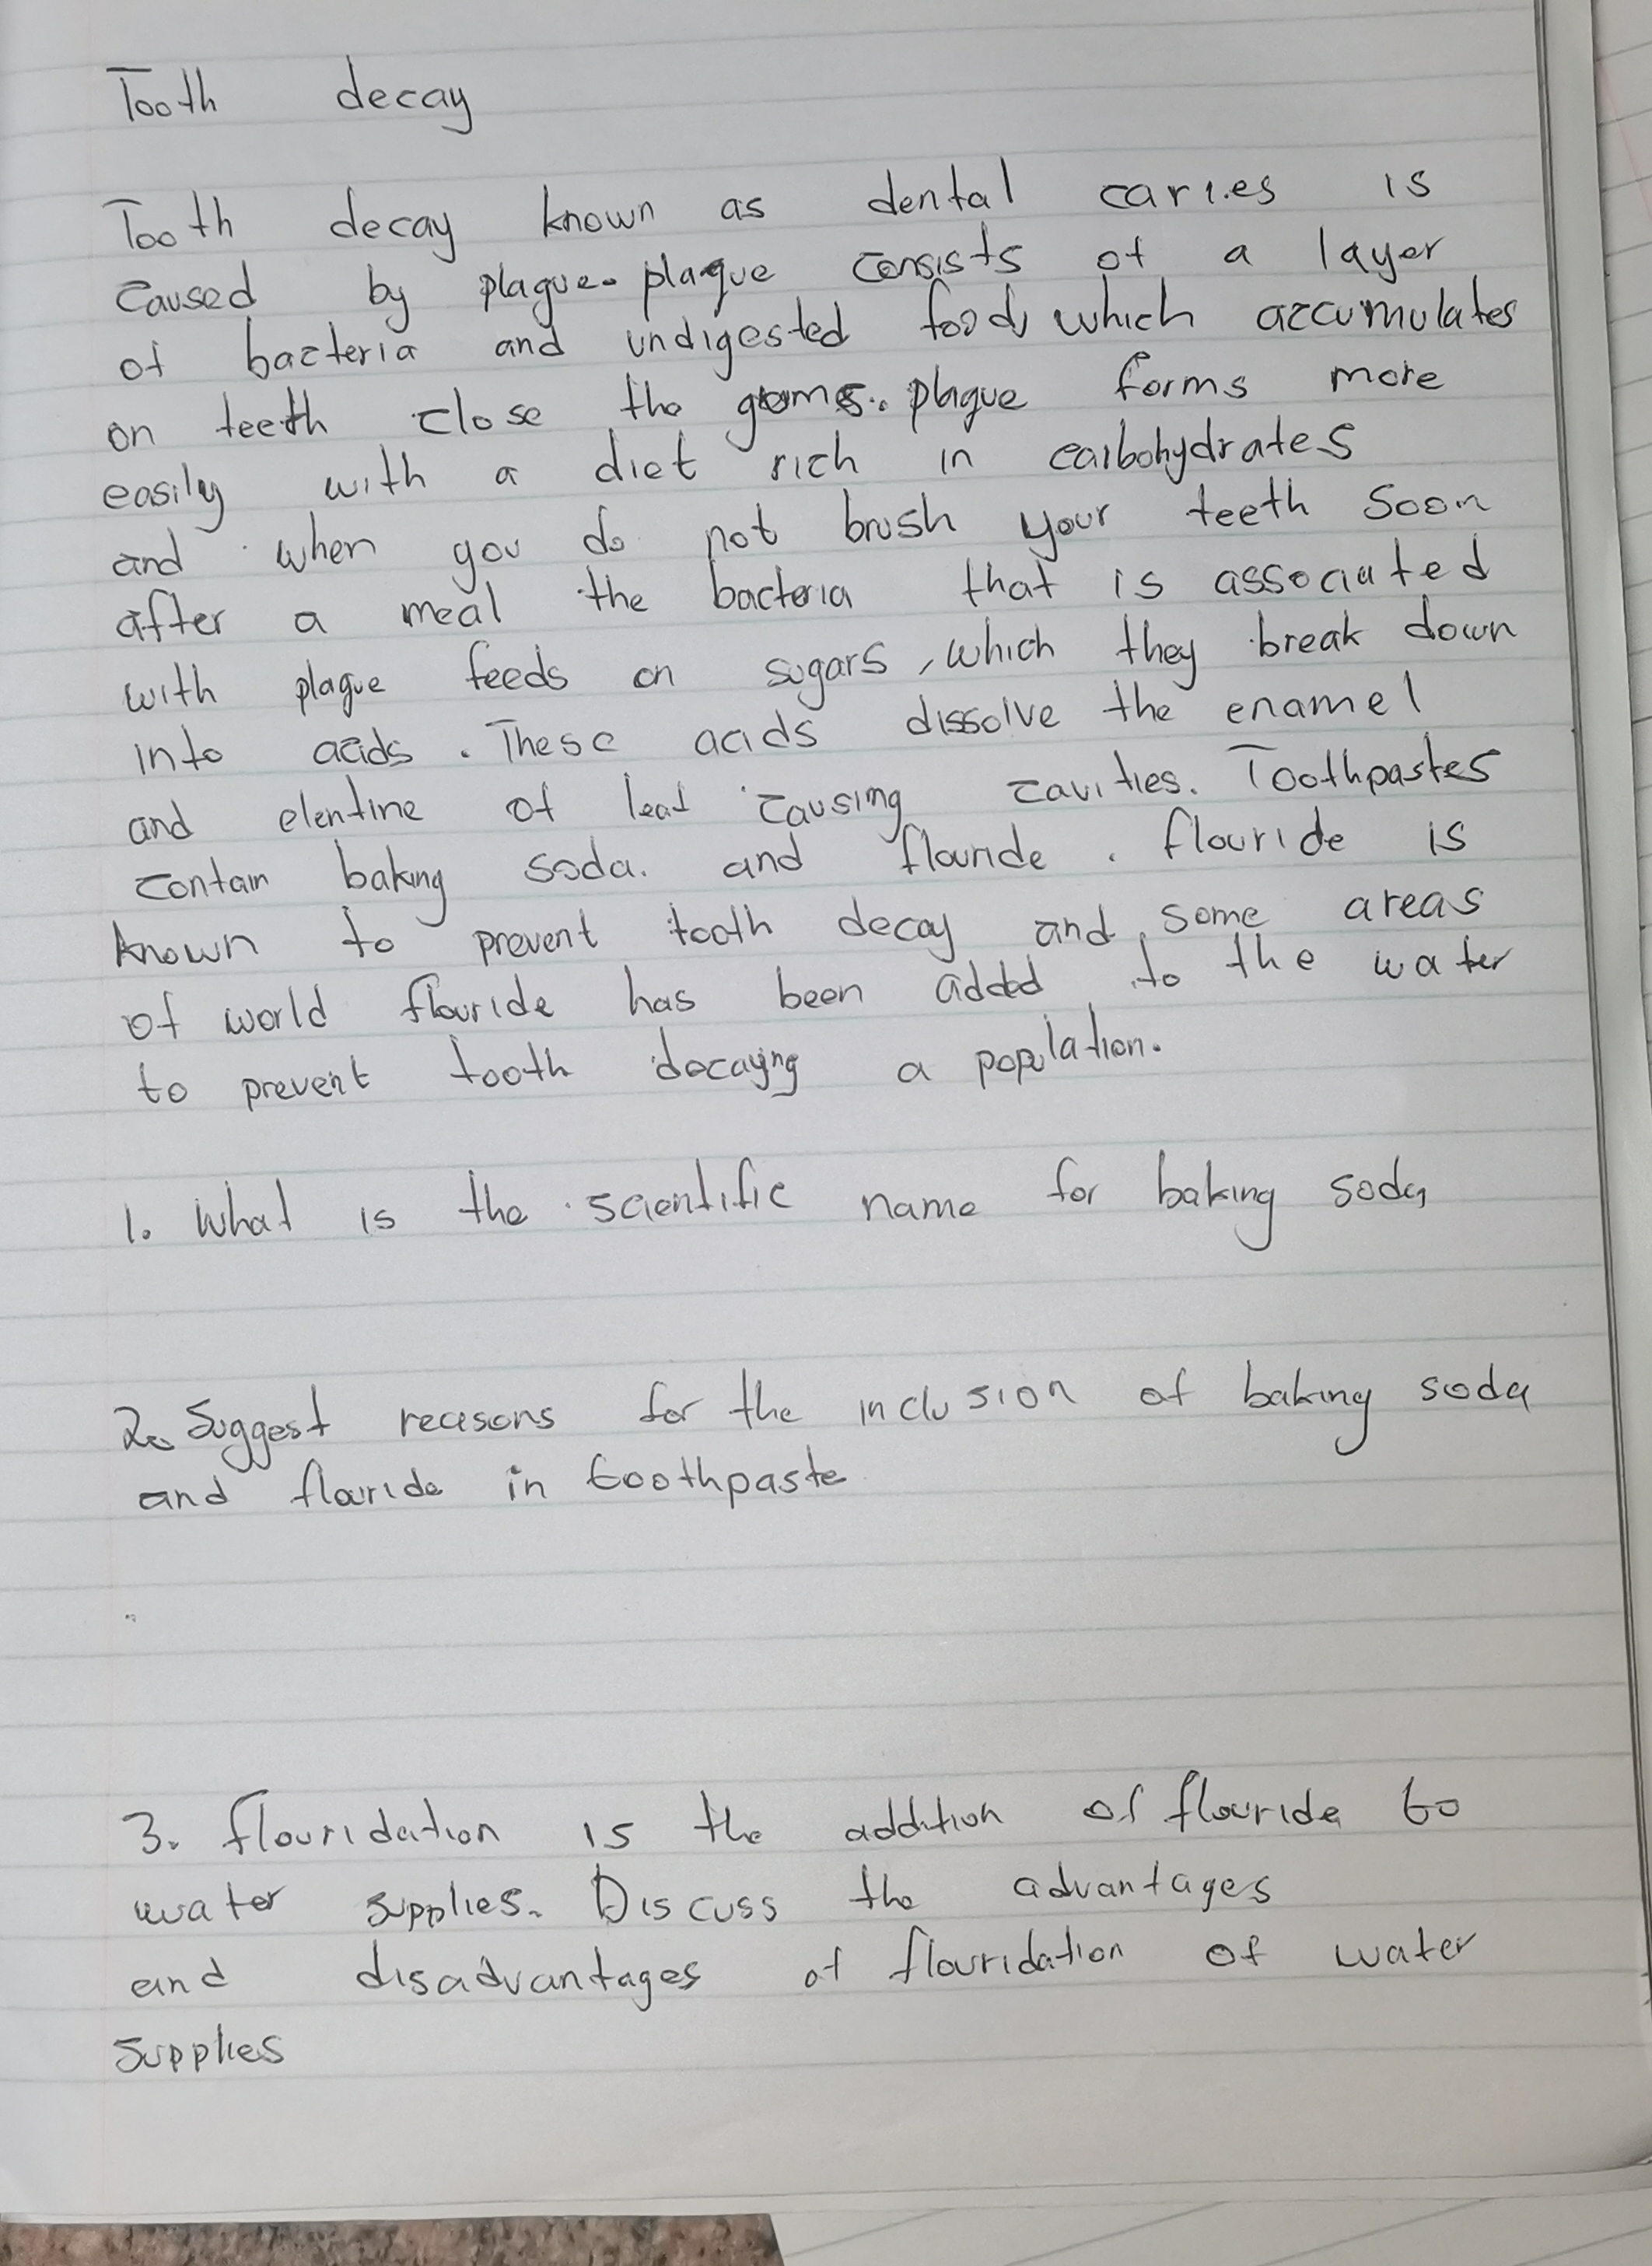 Tooth decay
Tooth decay known as dental caries is
caused by plague. plaque consists of a layer
of bacteria and undigested food which accumulates
on teeth close the gums. plague forms more
easily with a diet rich in carbohydrates
and when you do not brush your teeth soon
after a meal the bacteria that is associated
with plague feeds on sugars, which they break down
into acids. These acids dissolve the enamel
and elentine of leat causing cavities. Toothpastes
contain baking soda. and flouride. flouride is
known to prevent tooth decay and some areas
of world flouride has been added to the water
to prevent tooth decaying a population.
1. What is the scientific name for baking soda
2. Suggest reasons for the inclusion of baking soda
and flouride in toothpaste
3. flouridation is the addition of flouride to
water supplies. Discuss the advantages
and disadvantages of flouridation of water
supplies